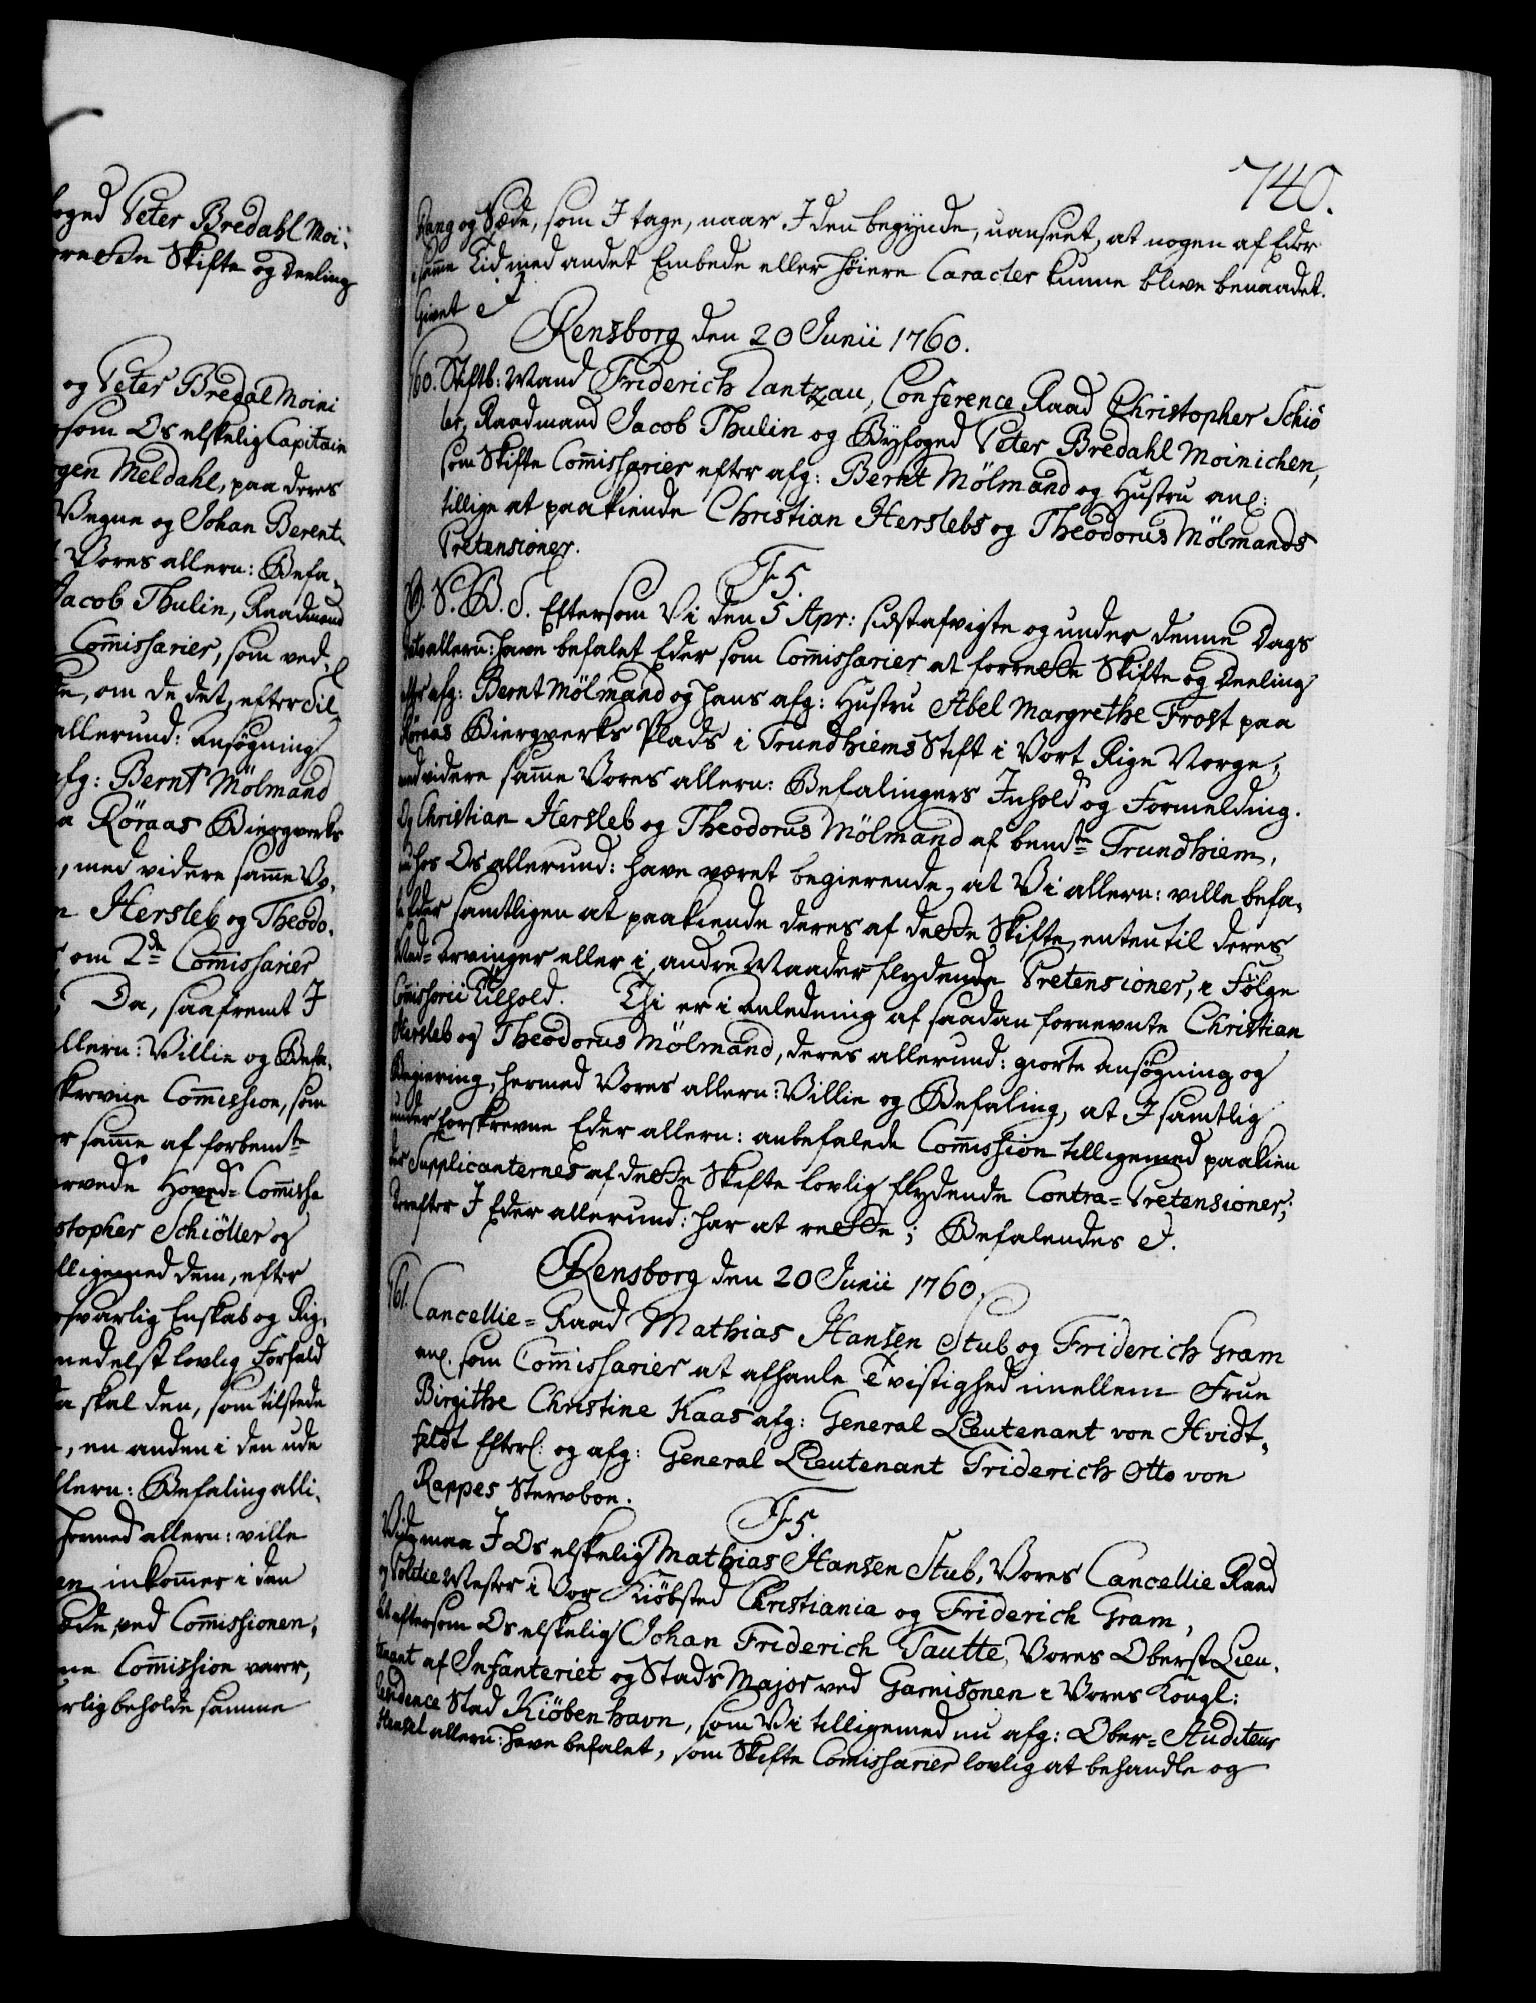 oged Peter Bredahl Moi-
orette Skifte og Deeling
og Peter Bredal Moini
som Os elskelig Capitain
gen Meldahl, paa deres
Vegne og Johan Berent
Vores allern: Befa-
Jacob Thulin, Raadmand
Commissarier, som ved-
om de det, efter
allerund: Ansøgning
afg: Bernt Mölmand
Röraas Biergverks
, med videre samme Vo-
Hersleb og Theodo-
om 2de Commissarier
Da, saafremt I
allern: Villie og Befa-
skrevne Commission, som
samme af forbemte
Hoved-Commissa
stopher Schiöller og
lligemed dem, efter
forsvarlig Enskab og Rig-
medelst lovlig Forfald
da skal den, som tilstede
, en anden i den ude
allern: Befaling alli-
hermed allern: ville
inkommer i den
ede, ved Commissionen,
Commission varer,
beholde samme
740.
Rang og Sæde, som I tage, naar I den begynde, uanseet, at nogen af Eder
i samme Tid med andet Embede eller høiere Caracter kunne blive benaadet.
Givet e
Rensborg den 20 Junii 1760.
60. Stiftb: Mand Friderich Rantzau, Conference Raad Christopher Schiö
ler, Raadmand Jacob Thulin og Byfoged Peter Bredahl Moinichen,
som Skifte Commissarier efter afg: Bernt Mölmand og Hustru anl:
tillige at paakiende Christian Herslebs og Theodorus Mölmands
Pretensioner.
F5.
V. S. B. S. Eftersom Vi den 5 Apr: sidstafvigte og under denne Dags
Dato allern: have befalet Eder som Commissarier at forrette Skifte og Deeling
efter afg: Bernt Mölmand og hans afg: Hustru Abel Margrethe Frost paa
Röraas Biergverks Plads i Trundhiems Stift i Vort Rige Norge,
med videre samme Vores allern: Befalingers Inhold og Formelding.
Og Christian Hersleb og Theodorus Mölmand af bemte Trundhiem,
nu hos Os allerund: have været begierende, at Vi allern: ville befa-
le Eder samtligen at paakiende deres af dette Skifte, enten til deres
Med-Arvinger eller i andre Maader flydende Pretensioner, i Følge
Commissorii Tilhold. Thi er i Anledning af saadan fornevnte Christian
Hersleb og Theodorus Mölmand, deres allerund: giorte Ansøgning og
Begiering, hermed Vores allern: Villie og Befaling, at I samtlig
under forskrevne Eder allern: anbefalede Commission tilligemed paakien
der Supplicanternes af dette Skifte lovlig flydende Contra-Pretensioner;
Derefter I Eder allerund: har at rette; Befalendes e.
Rensborg den 20 Junii 1760.
61. Cancellie-Raad Mathias Hansen Stub og Friderich Gram
anl. som Commissarier at afhanle Tvistighed imellem Frue
Birgithe Christine Kaas afg: General Lieutenant von Hvidt-
feldt Efterl: og afg: General Lieutenant Friderich Otto von
Rappes Stervboe.
F5.
Vide maa I Os elskelig Mathias Hansen Stub, Vores Cancellie Raad
og Politie Mester i Vor Kiöbsted Christiania og Friderich Gram,
At eftersom Os elskelig Johan Friderich Tautte, Vores Oberst Lieu-
tenant af Infanteriet og Stads Major ved Garnisonen i Vores Kongl:
Residence Stad Kiöbenhavn, som Vi tilligemed nu afg: Ober-Auditeur
Hensel allern: have befalet, som Skifte Comissarier lovlig at behandle og